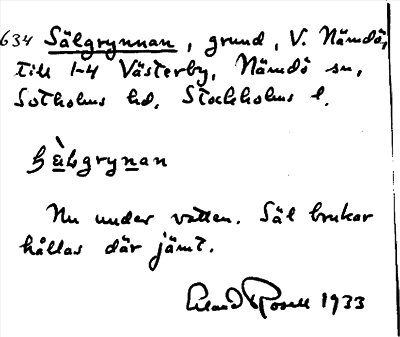 634 Sälgrynnan, grund, V. Nämdö,
till 1-4 Västerby, Nämdö sn,
Sotholms hd, Stockholms l.
sàlgrynan
Nu under vatten. Säl brukar
hållas där jämt.
Erland Rosell 1933